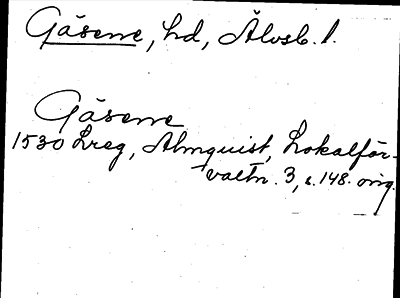 Gäsene, hd, Älvsb. l.
Gäsene
1530 Lreg, Almquist, Lokalför-
valtn. 3, s. 148. orig.